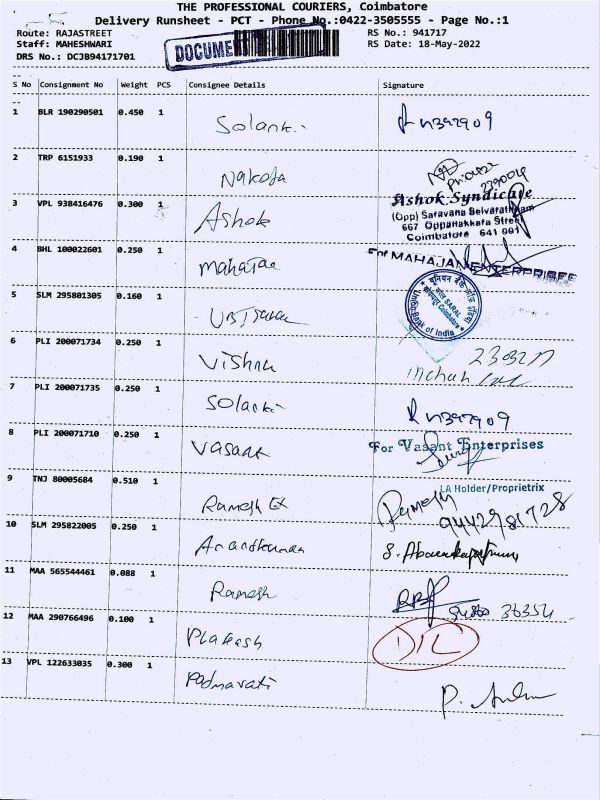 THE PROFESSIONAL COURIERS, Coimbatore
Delivery Runsheet - PCT - Phone No.:0422-3505555 - Page No.:1
Route: RAJASTREET RS No.: 941717
Staff: MAHESHWARI RS Date: 18-May-2022
DRS No.: DCJB94171701
DOCUME
S No Consignment No Weight PCS Consignee Details Signature
1 BLR 190290501 0.450 1
Solanki
2 TRP 6151933 0.190 1
Nakoda
3 VPL 938416476 0.300 1
Ashok
Ashok Syndicate
(Opp) Saravana Selvarathnam
667 Oppanakkara Street
Coimbatore 641 001
4 BHL 100022601 0.250 1
For MAHAJAN ENTERPRISES
5 SLM 295801305 0.160 1
यूनियन बैंक ऑफ इंडिया
SARAL
Coimbatore
Union Bank of India
6 PLI 200071734 0.250 1
Vishnu
7 PLI 200071735 0.250 1
Solanki
8 PLI 200071710 0.250 1
Vasant
For Vasant Enterprises
9 TNJ 80005684 0.510 1
LA Holder/Proprietrix
Ramesh Ex
Ramesh
10 SLM 295822005 0.250 1
11 MAA 565544461 0.088 1
Ramesh
12 MAA 290766496 0.100 1
Prakash
13 VPL 122633035 0.300 1
Padmavati